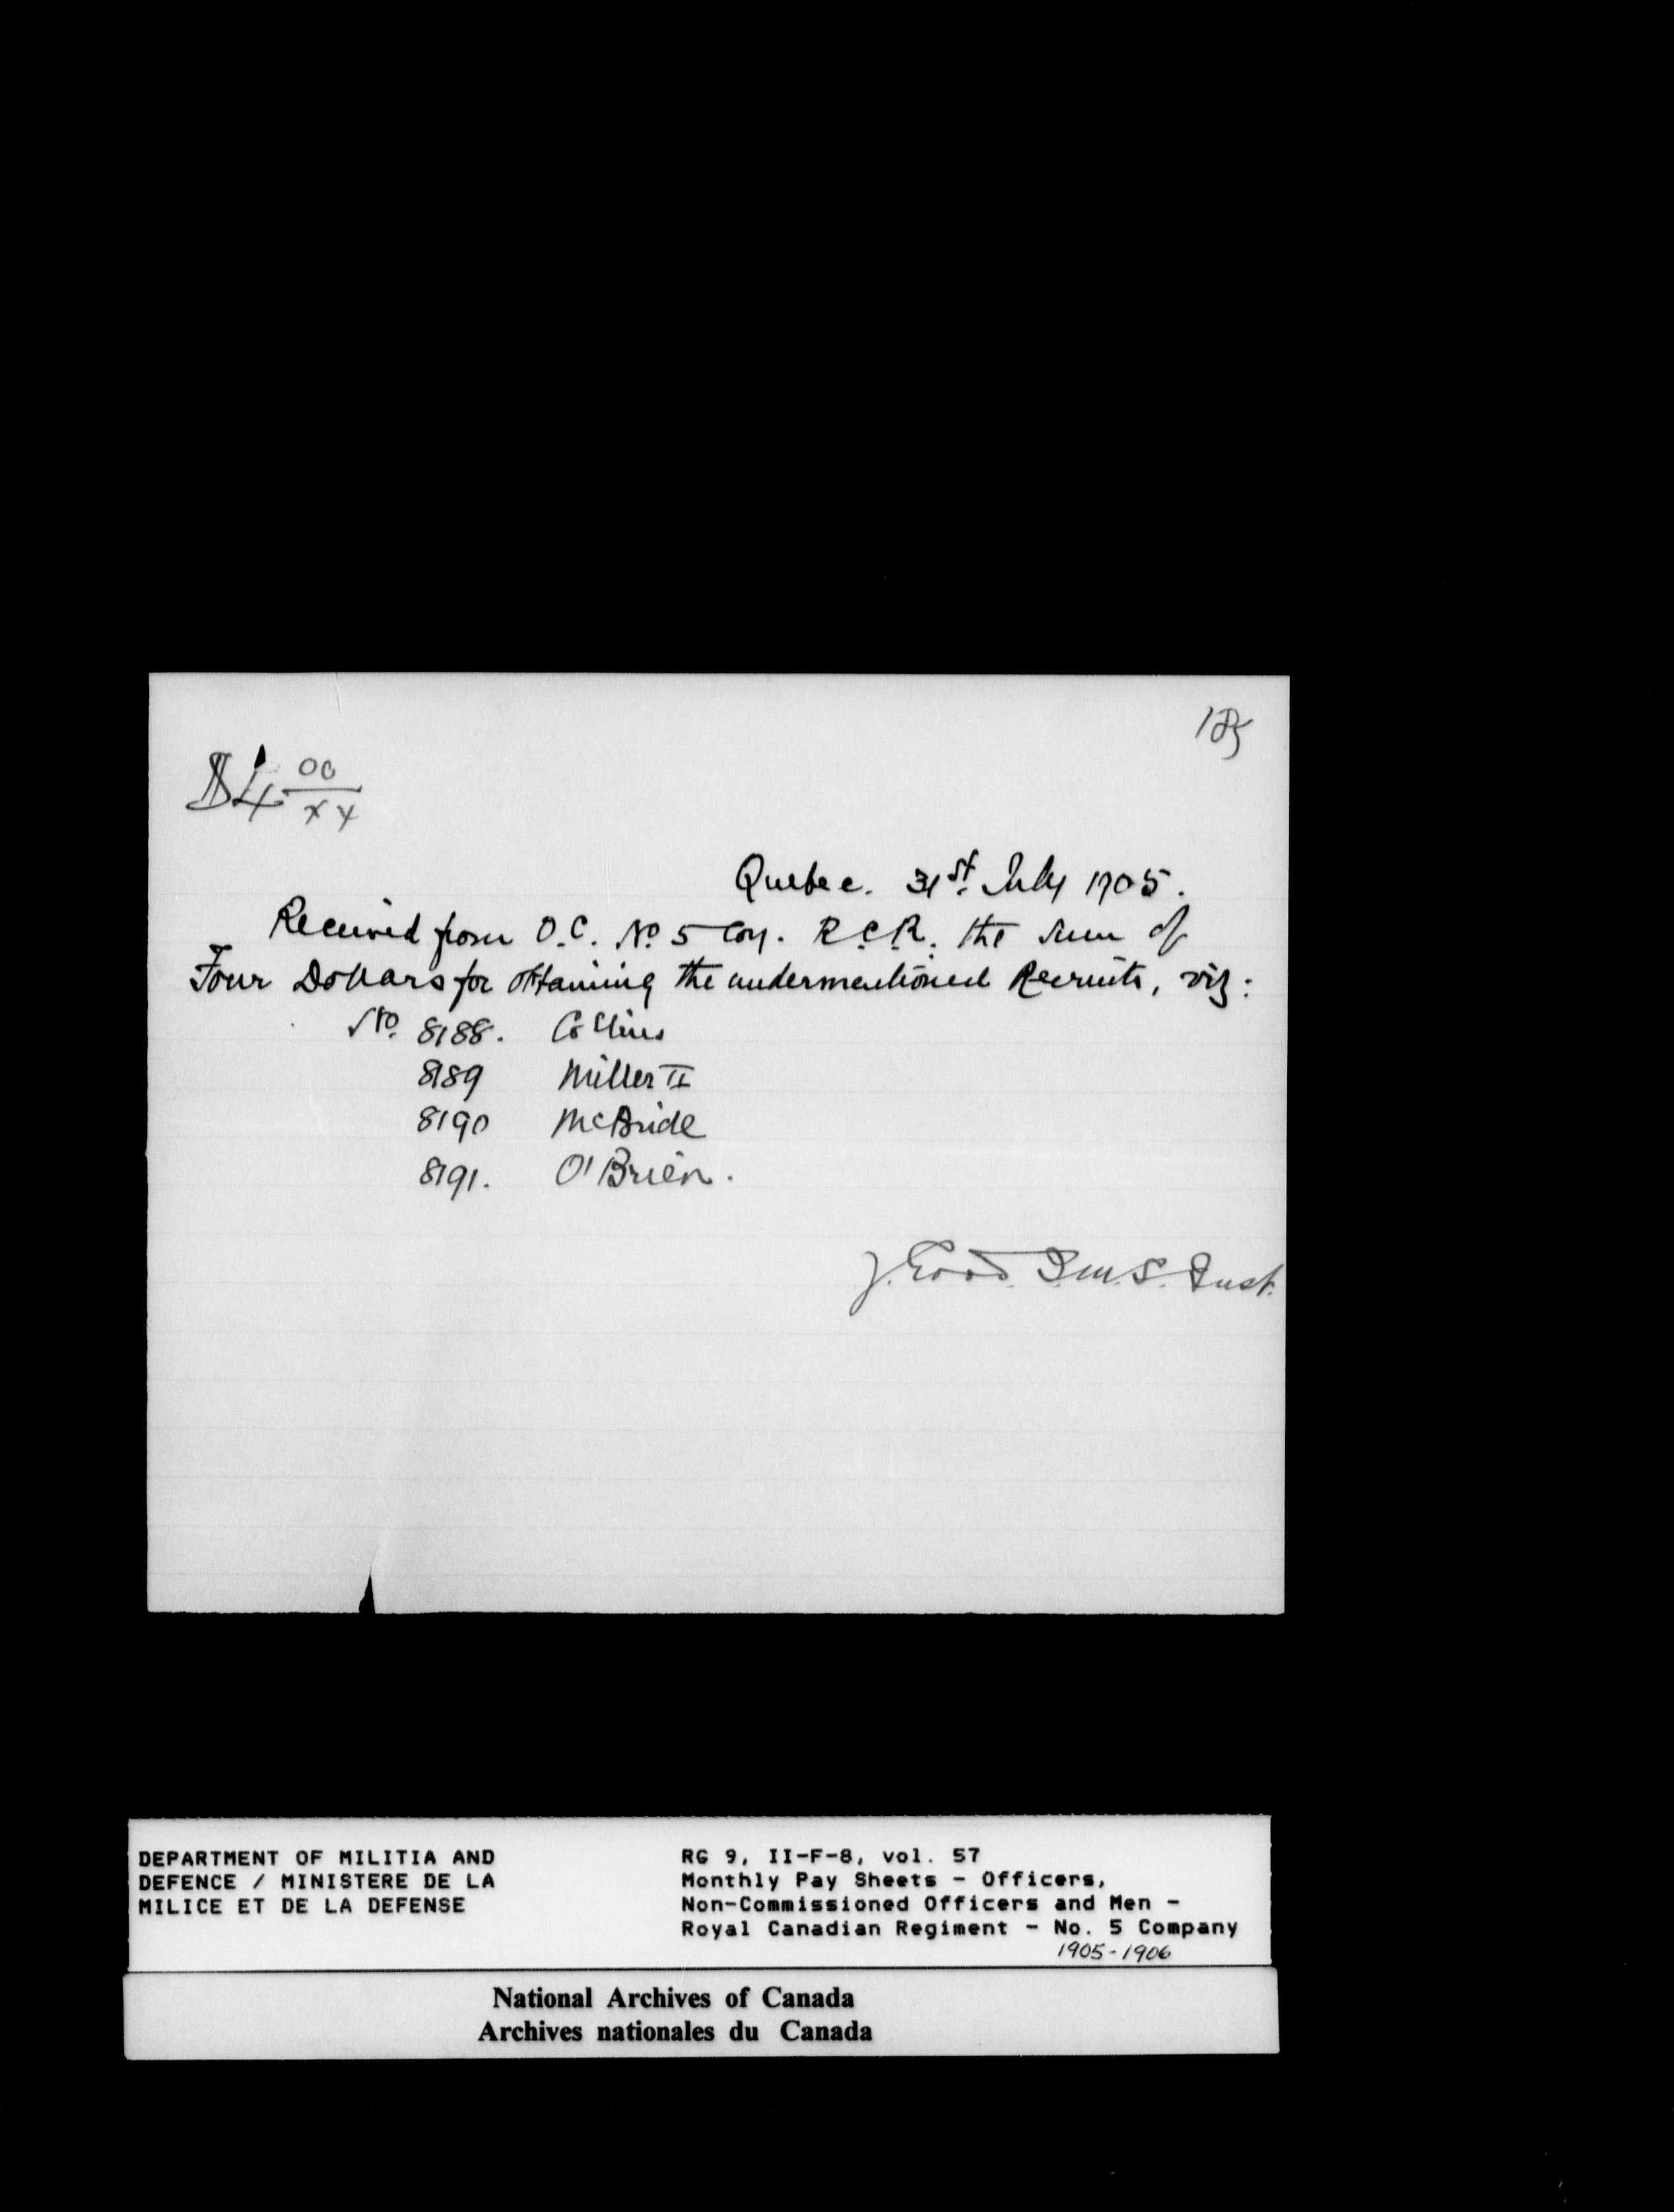 185
$4 00/xx
Quebec. 31st July 1905.
Received from O.C. No 5 Coy. R.C.R. the sum of
Four Dollars for obtaining the undermentioned Recruits, viz:
No. 8188. Collins
8189 Miller II
8190 McBride
8191. O'Brien.
J. Good. S.M.S. Inst.
DEPARTMENT OF MILITIA AND
DEFENCE / MINISTERE DE LA
MILICE ET DE LA DEFENSE
RG 9, II-F-8, vol. 57
Monthly Pay Sheets - Officers,
Non-Commissioned Officers and Men -
Royal Canadian Regiment - No. 5 Company
1905-1906
National Archives of Canada
Archives nationales du Canada